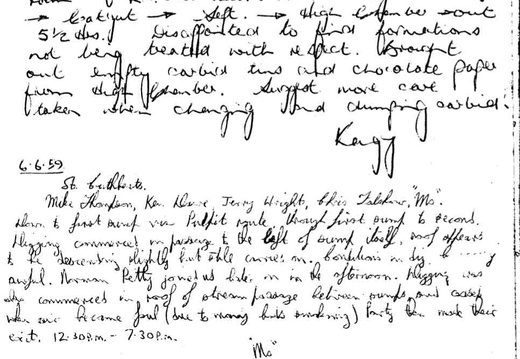 → Catgut → Sett. → High Chamber → out
5½ Hrs. Disappointed to find formations
not being treated with respect. Brought
out empty carbide tins and chocolate paper
from High Chamber. Suggest more care
taken when changing and dumping carbide.
6.6.59
St. Cuthberts.
Mike Thompson, Ken Dawe, Jerry Wright, Chris "Mo".
Down to first sump via Pulpit route through first sump to second.
Digging commenced in passage to the left of sump itself, roof appears
to be descending slightly but still carries on. Conditions in dig
awful. Norman Petty joined us later in the afternoon. Digging was
also commenced in roof of stream passage between sumps and ceased
when air became foul (due to many bods smoking) Party then made their
exit. 12.30p.m. - 7.30p.m.
"Mo"